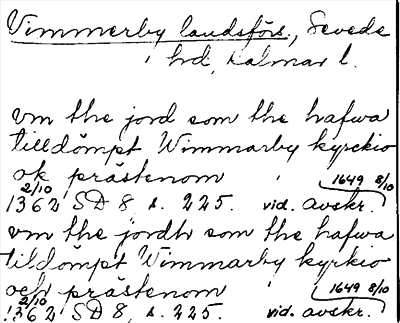 Vimmerby landsförs., Sevede
hd, Kalmar l.
vm the jord som the hafwa
tilldömpt Wimmarby kyrckio
ok prästenom 1649 8/10
2/10
1362 SD 8 s. 225. vid. avskr.
vm the jordh som the hafwa
tildömpt Wimmarby kyrkio
och prästenom 1649 8/10
2/10
1362 SD 8, s. 225. vid. avskr.